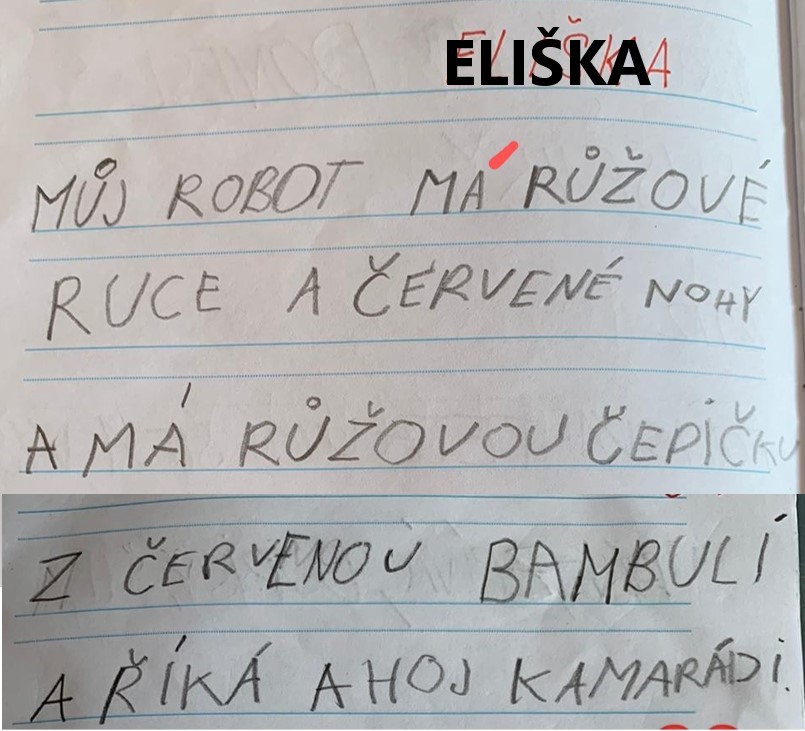 ELIŠKA
MŮJ ROBOT MÁ RŮŽOVÉ
RUCE A ČERVENÉ NOHY
A MÁ RŮŽOVOU ČEPIČKU
Z ČERVENOU BAMBULÍ
A ŘÍKÁ AHOJ KAMARÁDI.